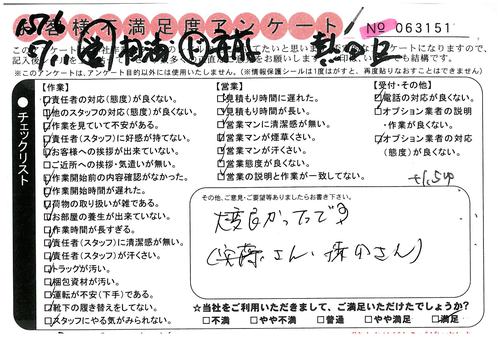 お客様不満足度アンケート
No 063151
※このアンケートは、アンケート目的以外には使用いたしません。(※情報保護シールは1度はがすと、再度貼りなおすことはできません)
●チェックリスト
【作業】
□責任者の対応(態度)が良くない。
□他のスタッフの対応(態度)が良くない。
□作業を見ていて不安がある。
□責任者(スタッフ)に好感が持てない。
□お客様への挨拶が出来ていない。
□ご近所への挨拶・気遣いが無い。
□作業開始前の内容確認がなかった。
□作業開始時間が遅れた。
□荷物の取り扱いが雑である。
□お部屋の養生が出来ていない。
□作業時間が長すぎる。
□責任者(スタッフ)に清潔感が無い。
□責任者(スタッフ)が汗くさい。
□トラックが汚い。
□梱包資材が汚い。
□運転が不安(下手)である。
□靴下の履き替えをしてない。
□スタッフにやる気がみられない。
【営業】
□見積もり時間に遅れた。
□見積もり時間が長い。
□営業マンに清潔感が無い。
□営業マンが煙草くさい。
□営業マンが汗くさい。
□営業態度が良くない。
□営業の説明と作業が一致してない。
【受付・その他】
□電話の対応が良くない。
□オプション業者の説明
・作業が良くない。
□オプション業者の対応
(態度)が良くない。
その他、ご意見・ご要望等ありましたらお書き下さい。
大変良かったです
☆当社をご利用いただきまして、ご満足いただけたでしょうか?
□不満 □やや不満 □普通 □やや満足 □満足